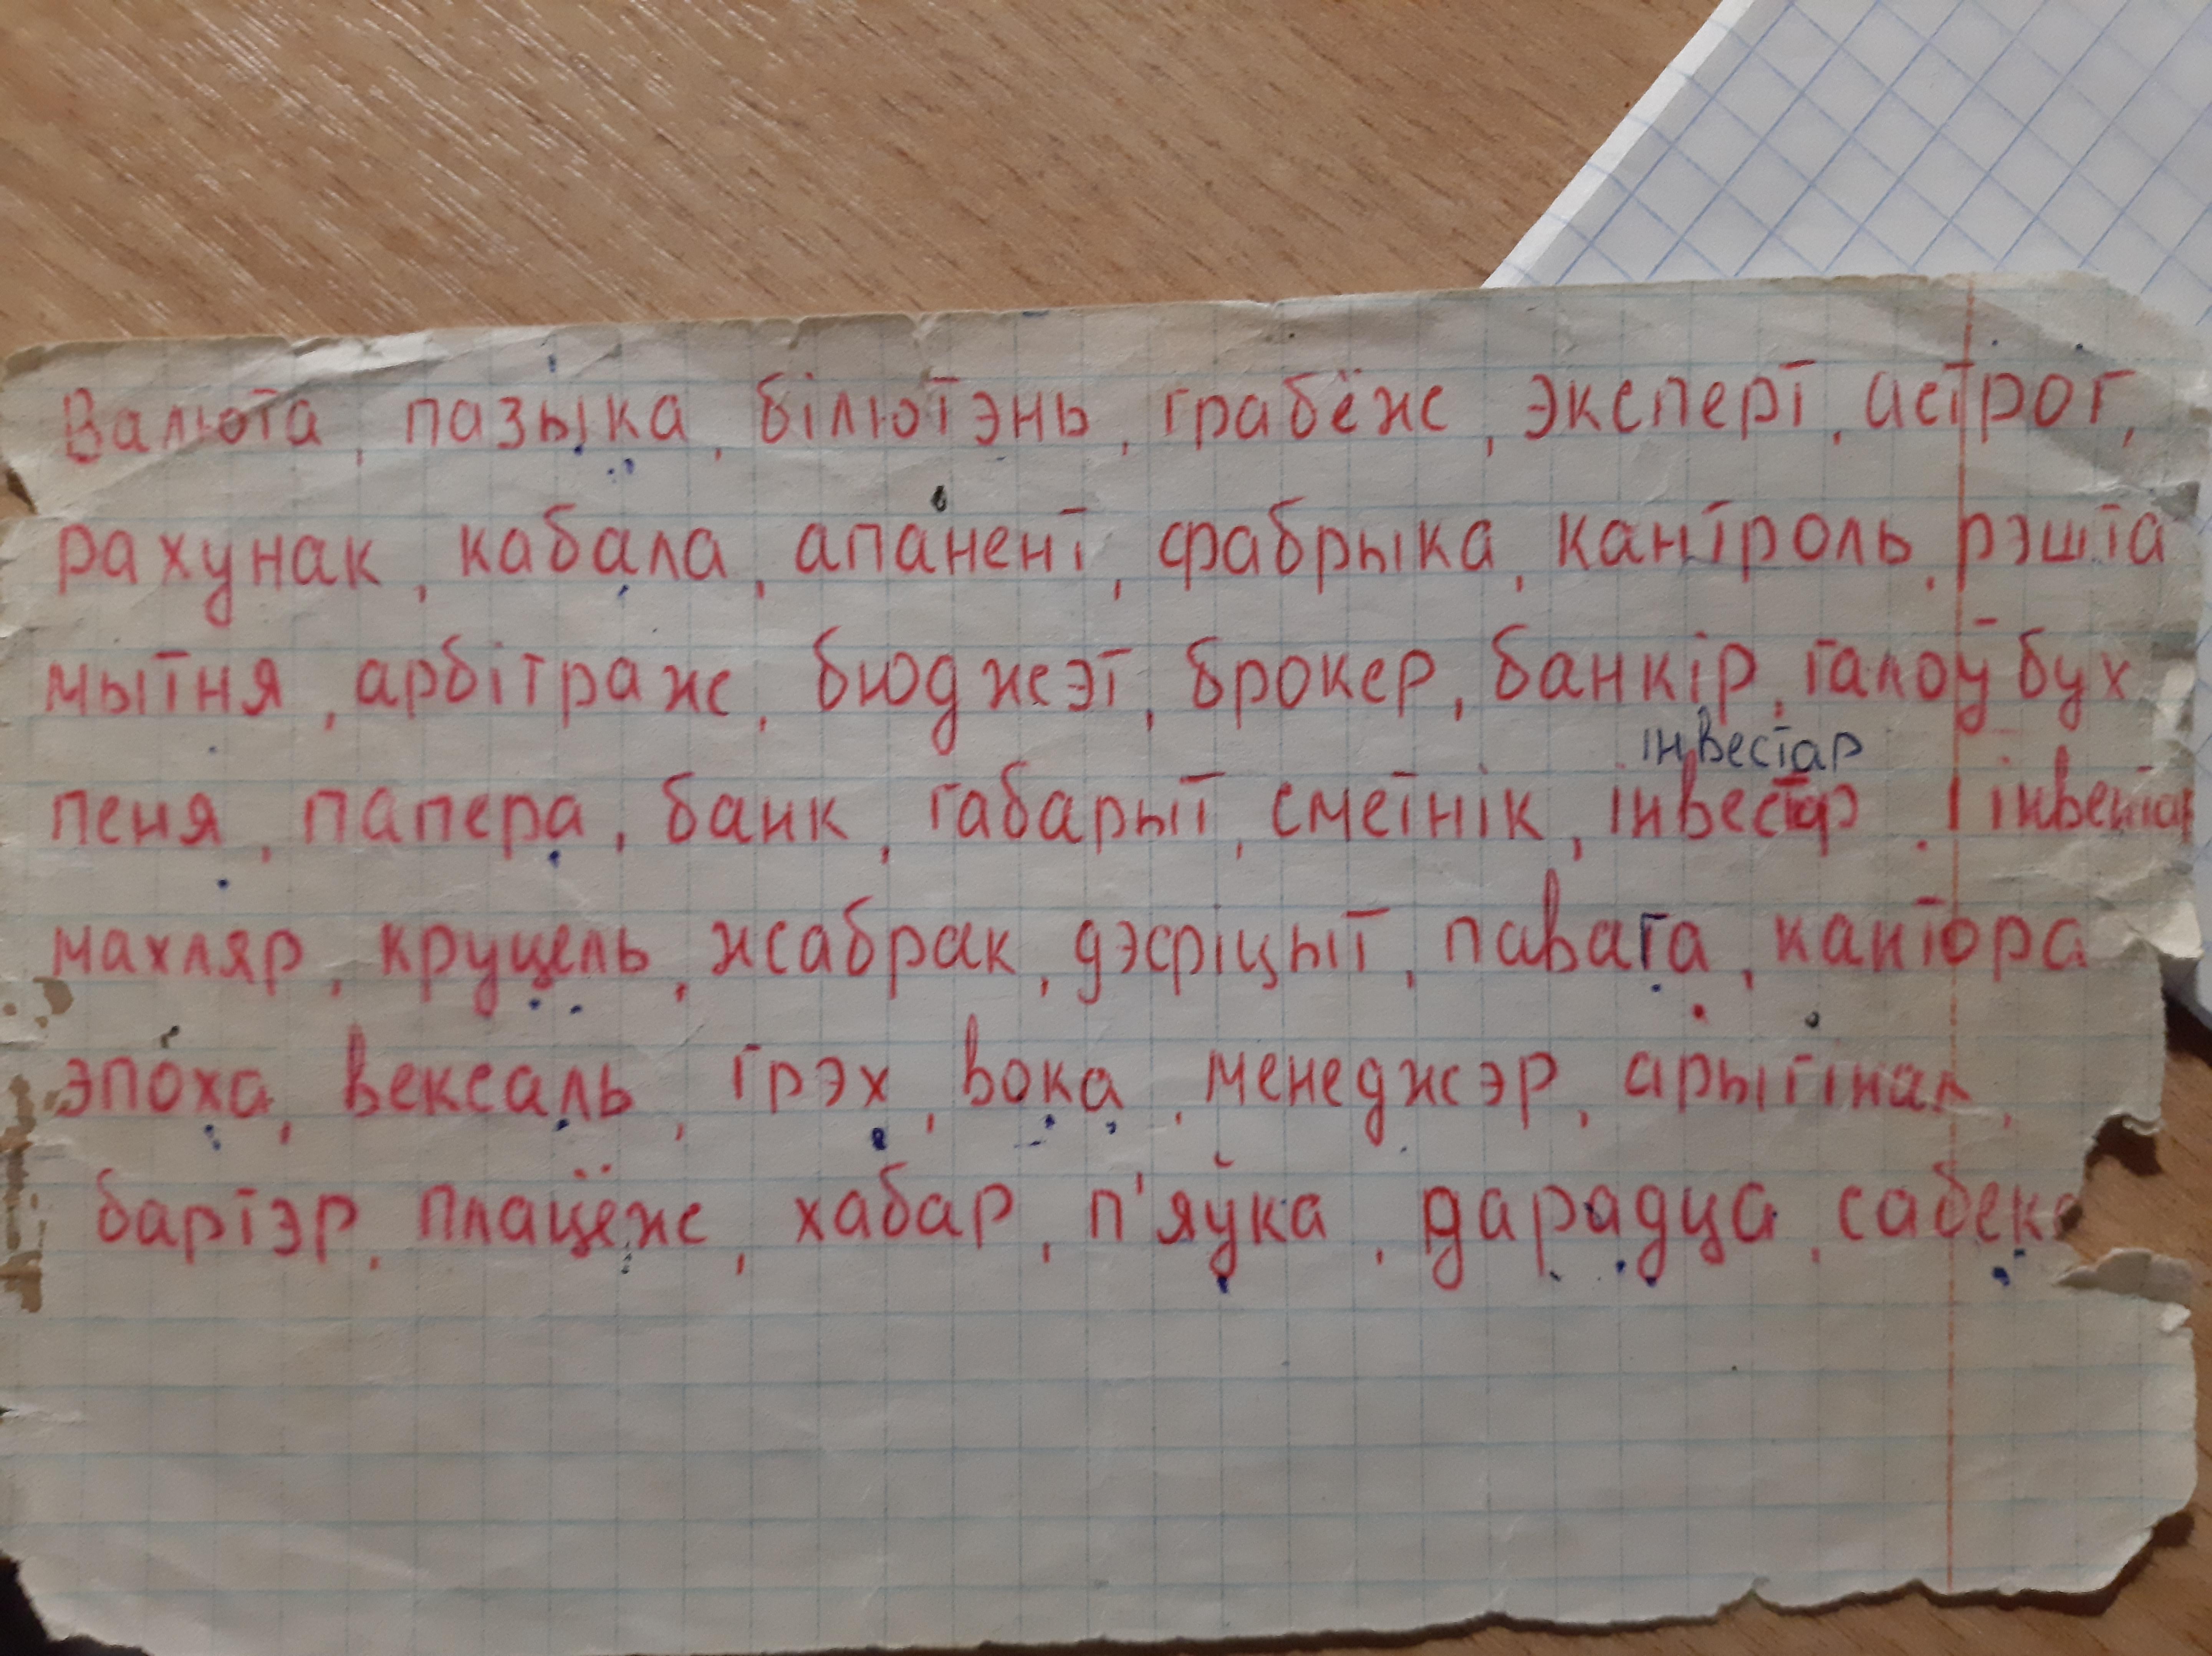 Валюта, пазыка, білютэнь, грабёж, эксперт, астрог,
рахунак, кабала, апанент, фабрыка, кантроль, рэшта
мытня, арбітраж, бюджэт, брокер, банкір, галоўбух
інвестар
пеня, папера, банк, габарыт, сметнік, інвестар, інвестар
махляр, круцель, жабрак, дэфіцыт, павага, кантора
эпоха, вексаль, грэх, вока, менеджэр, арыгінал,
бартэр, плацёж, хабар, п'яўка, дарадца,